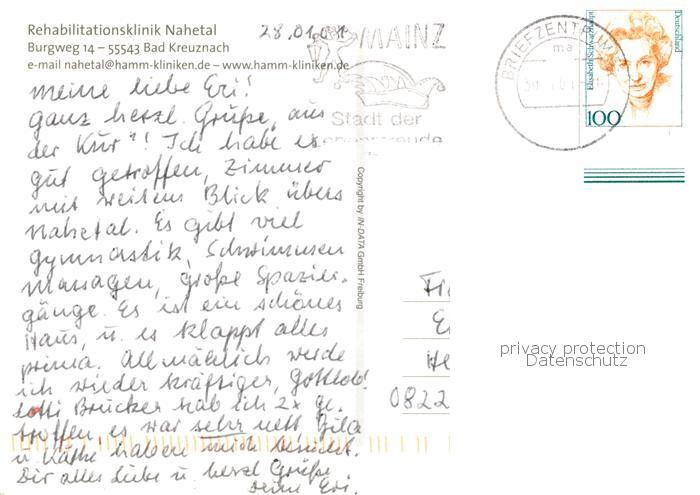 Rehabilitationsklinik Nahetal
Burgweg 14 – 55543 Bad Kreuznach
e-mail nahetal@hamm-kliniken.de – www.hamm-kliniken.de
28.01.01
meine liebe Evi!
ganz herzl. Grüße, aus
der Kur"! Ich habe es
gut getroffen, Zimmer
mit weitem Blick übers
Nahetal. Es gibt viel
Gymnastik, Schwimmen
Massagen, große Spazier-
gänge. Es ist ein schönes
Haus, u. es klappt alles
prima. Allmählich werde
ich wieder kräftiger, Gottlob!
Lotti Brücker hab ich 2x ge-
troffen, es war sehr nett
u Käthe haben mich besucht.
Dir alles Liebe u herzl Grüße
Deine Evi.
MAINZ
Stadt der
BRIEFZENTRUM
ma
Elisabeth Schwarzhaupt
Deutschland
100
Copyright by IN-DATA GmbH Freiburg
0822
privacy protection
Datenschutz